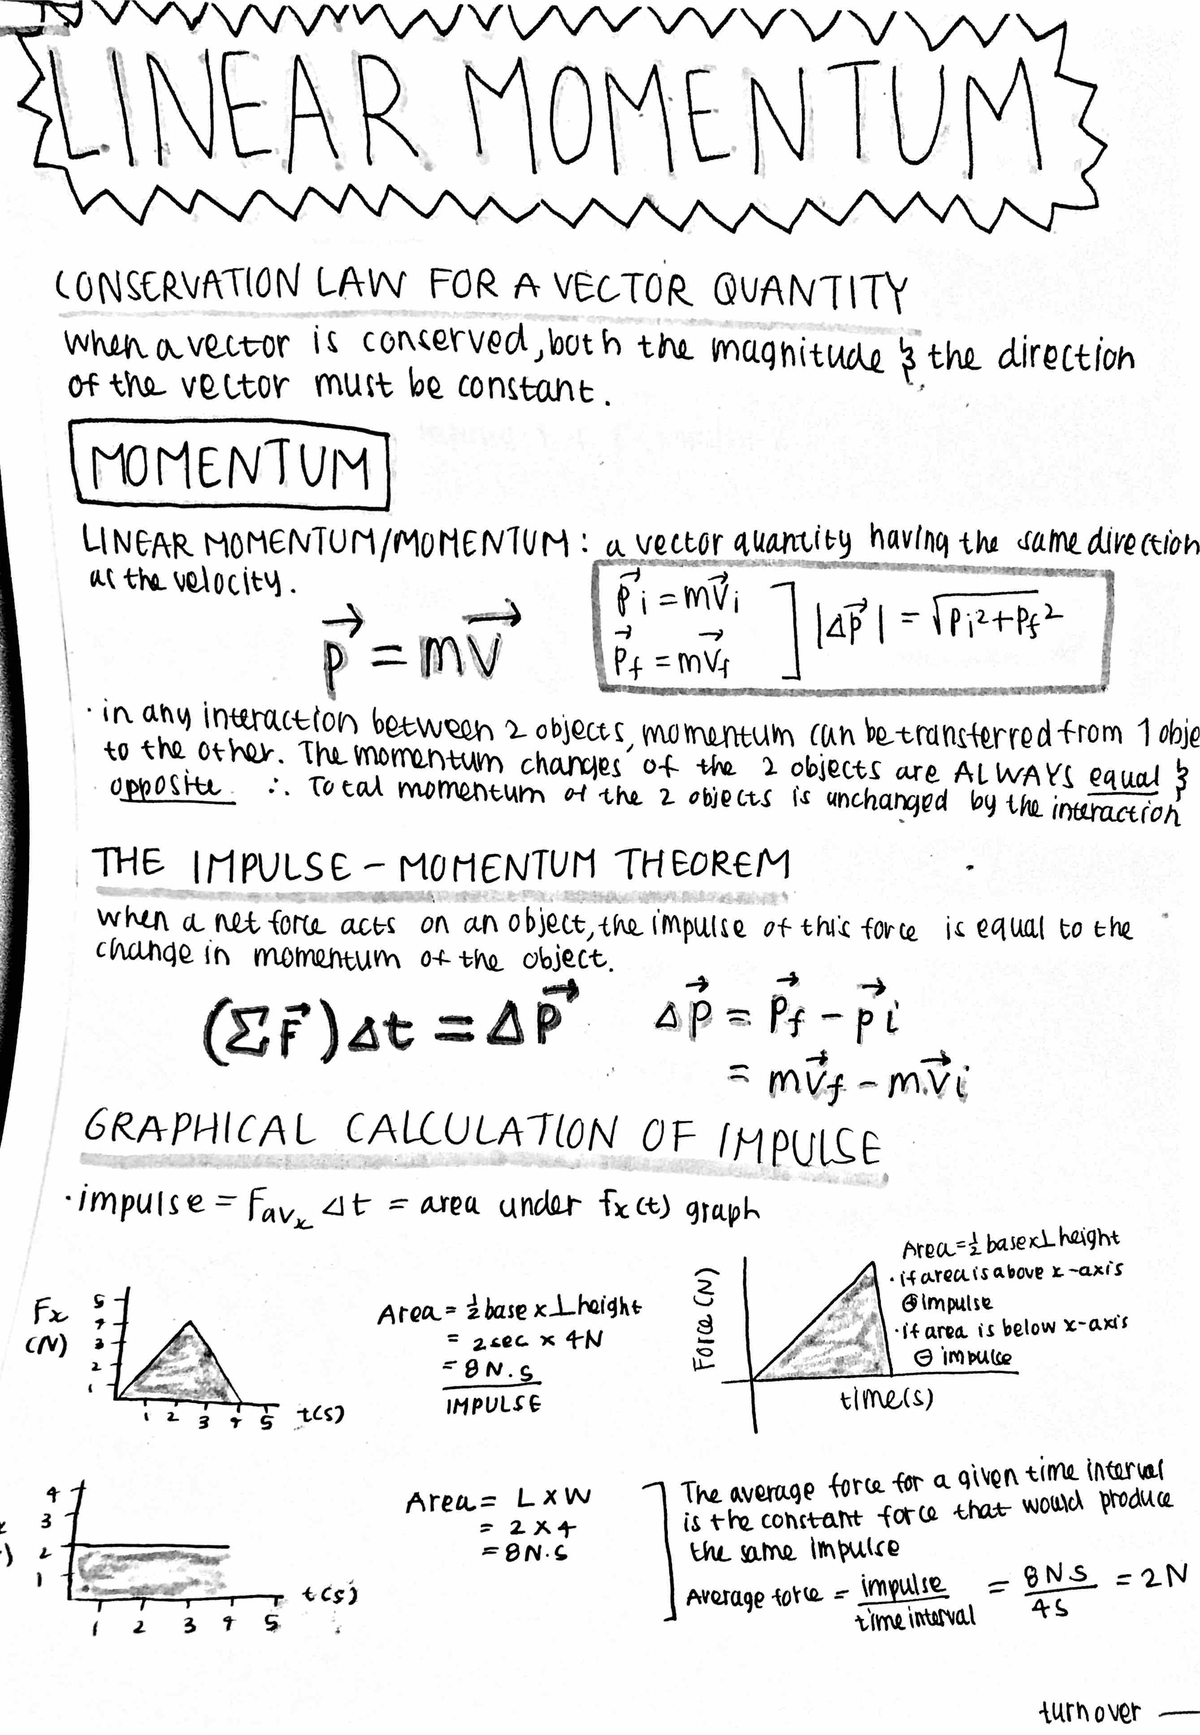 LINEAR MOMENTUM
CONSERVATION LAW FOR A VECTOR QUANTITY
when a vector is conserved, both the magnitude & the direction
of the vector must be constant.
MOMENTUM
LINEAR MOMENTUM/MOMENTUM: a vector quantity having the same direction
as the velocity.
p⃗ = mv⃗
p⃗i = mv⃗i
p⃗f = mv⃗f
|Δp⃗| = √pi²+pf²
· in any interaction between 2 objects, momentum can be transferred from 1 obje
to the other. The momentum changes of the 2 objects are ALWAYS equal &
opposite ∴ Total momentum of the 2 objects is unchanged by the interaction
THE IMPULSE - MOMENTUM THEOREM
when a net force acts on an object, the impulse of this force is equal to the
change in momentum of the object.
(ΣF⃗)Δt = Δp⃗
Δp⃗ = p⃗f - p⃗i
= mv⃗f - mv⃗i
GRAPHICAL CALCULATION OF IMPULSE
· impulse = Favx Δt = area under fx(t) graph
Fx
(N)
5
4
3
2
1
1 2 3 4 5 t(s)
Area = ½ base x ⊥ height
= 2sec x 4N
= 8N.s
IMPULSE
Force (N)
time(s)
Area = ½ base x ⊥ height
· if area is above x-axis
⊕ impulse
· if area is below x-axis
⊖ impulse
4
3
2
1
1 2 3 4 5
t(s)
Area = L x W
= 2 x 4
= 8N.s
The average force for a given time interval
is the constant force that would produce
the same impulse
Average force = impulse/time interval = 8N.s/4s = 2N
turnover